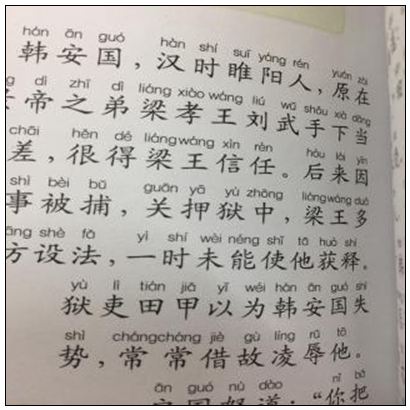 hán ān guó hàn shí suī yáng rén yuán zài
韩安国，汉时睢阳人，原在
dì zhī dì liáng xiào wáng liú wǔ shǒu xià dāng
帝之弟梁孝王刘武手下当
chāi hěn dé liángwáng xìn rèn hòu lái yīn
差，很得梁王信任。后来因
shì bèi bǔ guān yā yù zhōng liángwáng duō
事被捕，关押狱中，梁王多
āng shè fǎ yì shí wèi néng shǐ tā huò shì
方设法，一时未能使他获释。
yù lì tián jiǎ yǐ wéi hán ān guó shī
狱吏田甲以为韩安国失
shì chángcháng jiè gù líng rǔ tā
势，常常借故凌辱他。
ān guó nù dào nǐ bǎ
安国怒道：“你把